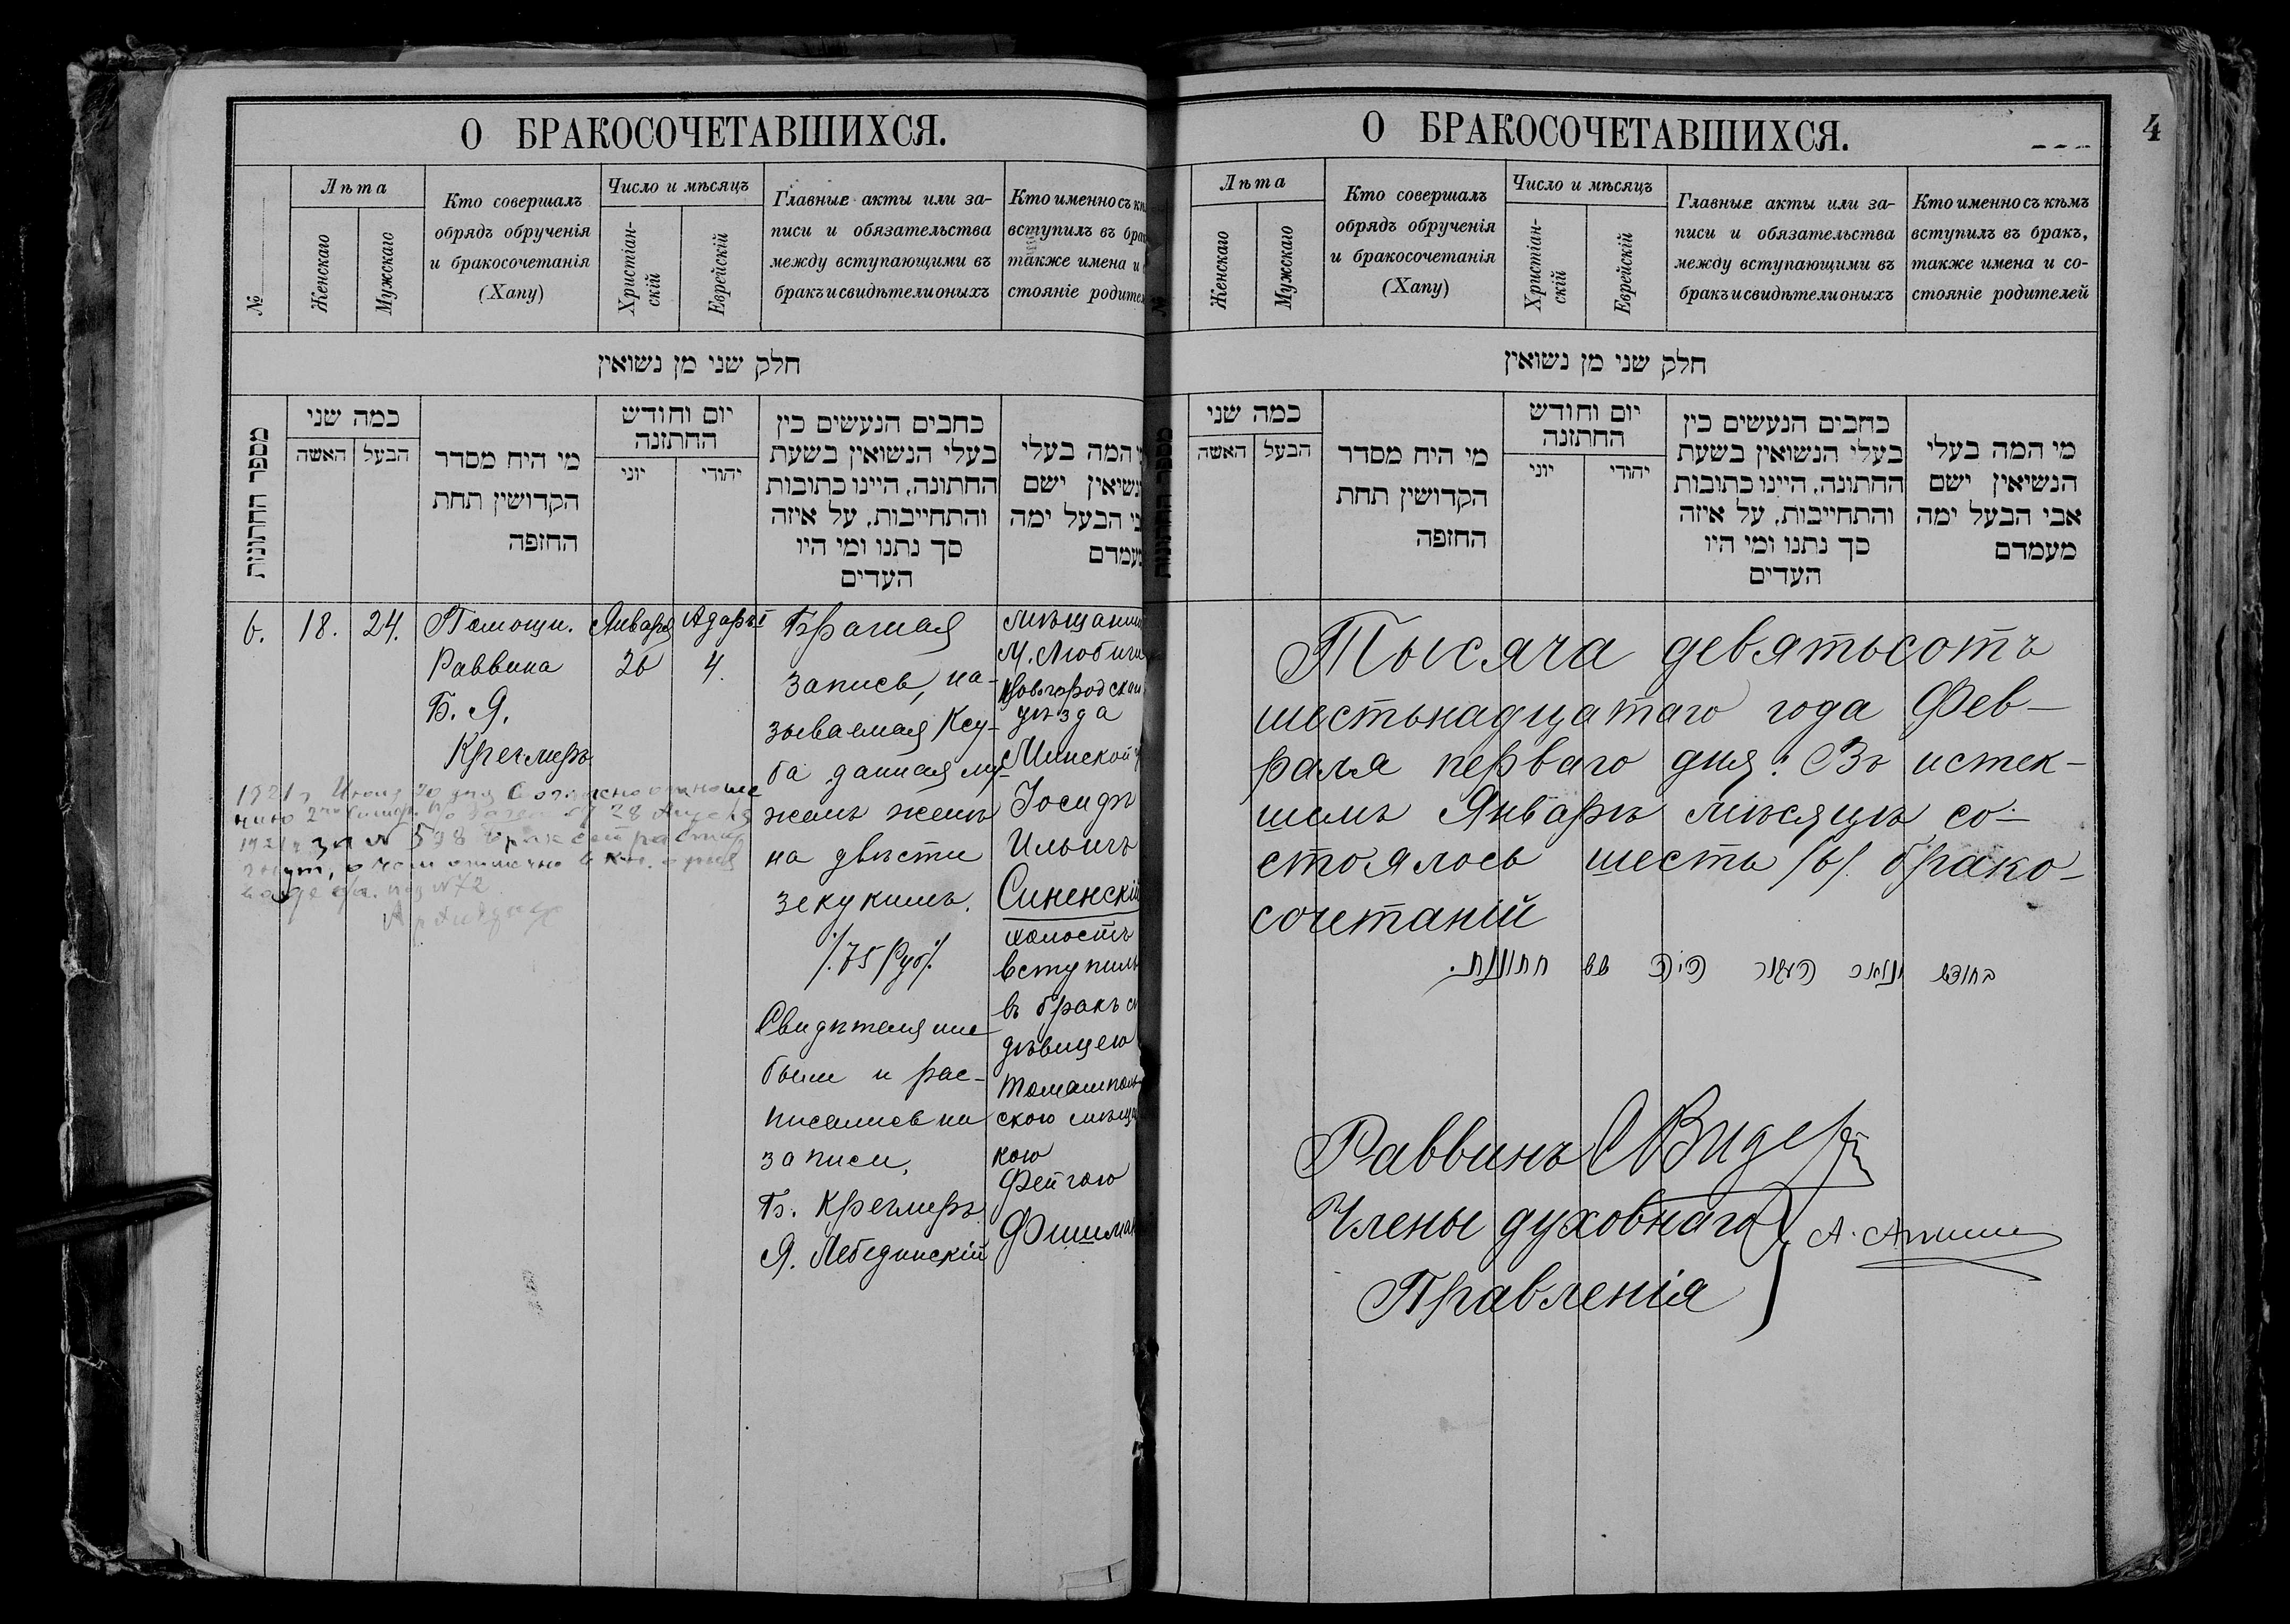 О БРАКОСОЧЕТАВШИХСЯ.
№
Лѣта
Женскаго
Мужскаго
Кто совершалъ
обрядъ обрученія
и бракосочетанія
(Хапу)
Число и мѣсяцъ
Христіан-
скій
Еврейскій
Главные акты или за-
писи и обязательства
между вступающими въ
бракъ и свидѣтели оныхъ
Кто именно съ
вступилъ въ
также имена и
стояніе
חלק שני מן נשואין
מספר החתונות
כמה שני
האשה
הבעל
מי היח מסדר
הקדושין תחת
החזפה
יום וחודש
החתזנה
יוני
יהודי
כחבים הנעשים כין
בעלי הנשואין בשעת
החתונה, היינו כתובות
והתחייבות, על איזה
סך נתנו ומי היו
העדים
המה בעלי
ישם
הבעל ימה
6.
18.
24.
Помощн.
Раввина
Б. Я.
Кречмеръ
Января
26
Адаръ I
4.
Брачная
запись, на-
зываемая Ксу-
ба данная му-
жемъ женѣ
на двѣсти
зекукимъ.
/. 75 руб /.
Свидѣтелями
были и рас-
писались на
записи,
Б. Кречмеръ
Я. Лебединскій
М.
уѣзда
Минской
Іосифъ
Ильичъ
Синенскій
холостъ
вступилъ
въ бракъ
дѣвицею
Томашполь-
скою
кою
Фейгою
Фишман
1921 г. Июня 20 дня
1921 г. за № 538 брак
под № 72
О БРАКОСОЧЕТАВШИХСЯ.
4
Лѣта
Женскаго
Мужскаго
Кто совершалъ
обрядъ обрученія
и бракосочетанія
(Хапу)
Число и мѣсяцъ
Христіан-
скій
Еврейскій
Главные акты или за-
писи и обязательства
между вступающими въ
бракъ и свидѣтели оныхъ
Кто именно съ кѣмъ
вступилъ въ бракъ,
также имена и со-
стояніе родителей
חלק שני מן נשואין
כמה שני
האשה
הבעל
מי היח מסדר
הקדושין תחת
החזפה
יום וחודש
החתזנה
יוני
יהודי
כחבים הנעשים כין
בעלי הנשואין בשעת
החתונה, היינו כתובות
והתחייבות, על איזה
סך נתנו ומי היו
העדים
מי המה בעלי
הנשיאין ישם
אבי הבעל ימה
מעמדם
Тысяча девятьсотъ
шестьнадцатаго года Фев-
раля перваго дня. Въ истек-
шемъ Январѣ мѣсяцѣ со-
стоялось шесть /6/. брако-
сочетаній
בחודש ינואר העבר היה שש חתונות.
Раввинъ
Члены духовнаго
Правленія